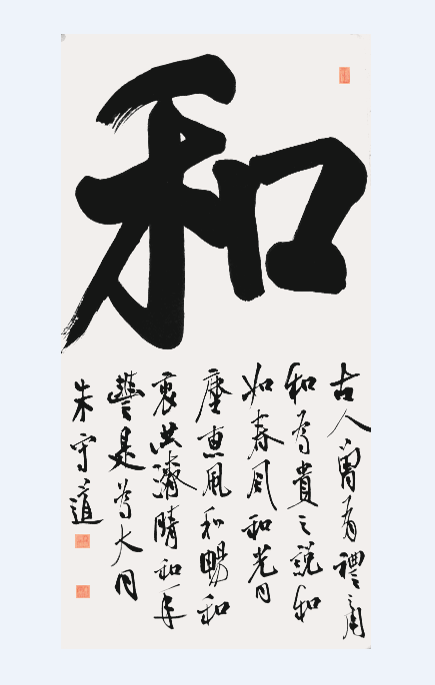 和
古人曾有禮之用
和為貴之說和
如春風和光同
塵惠風和暢和
衷共濟晴和年
豐是為大同
朱守道